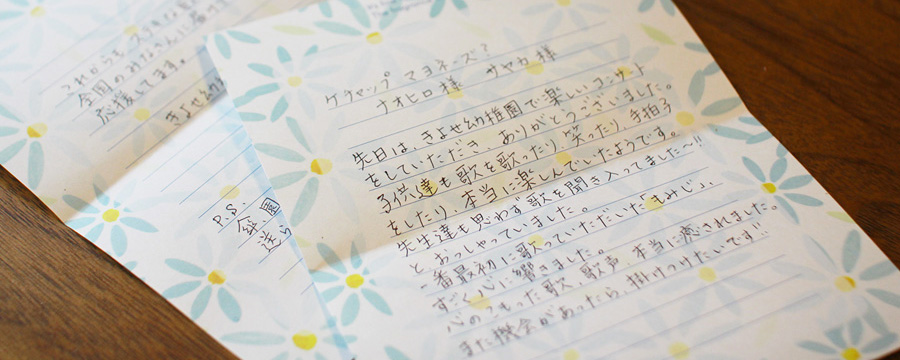 ケチャップ マヨネーズ?
ナオヒロ様 サヤカ様
先日は、きよせ幼稚園で楽しいコンサート
をしていただき、ありがとうございました。
子供達も歌を歌ったり、笑ったり、手拍子
をしたり、本当に楽しんでいたようです。
先生達も思わず歌を聞き入ってました〜!!
とおっしゃっていました。
一番最初に歌っていただいた「もみじ」、
すごく心に響きました。
心のこもった歌、歌声 本当に癒されました。
また機会があったら、掛けつけたいです!!
これからも
全国のみなさんに
応援してます。
きよせ幼
P.S.
園
送ら